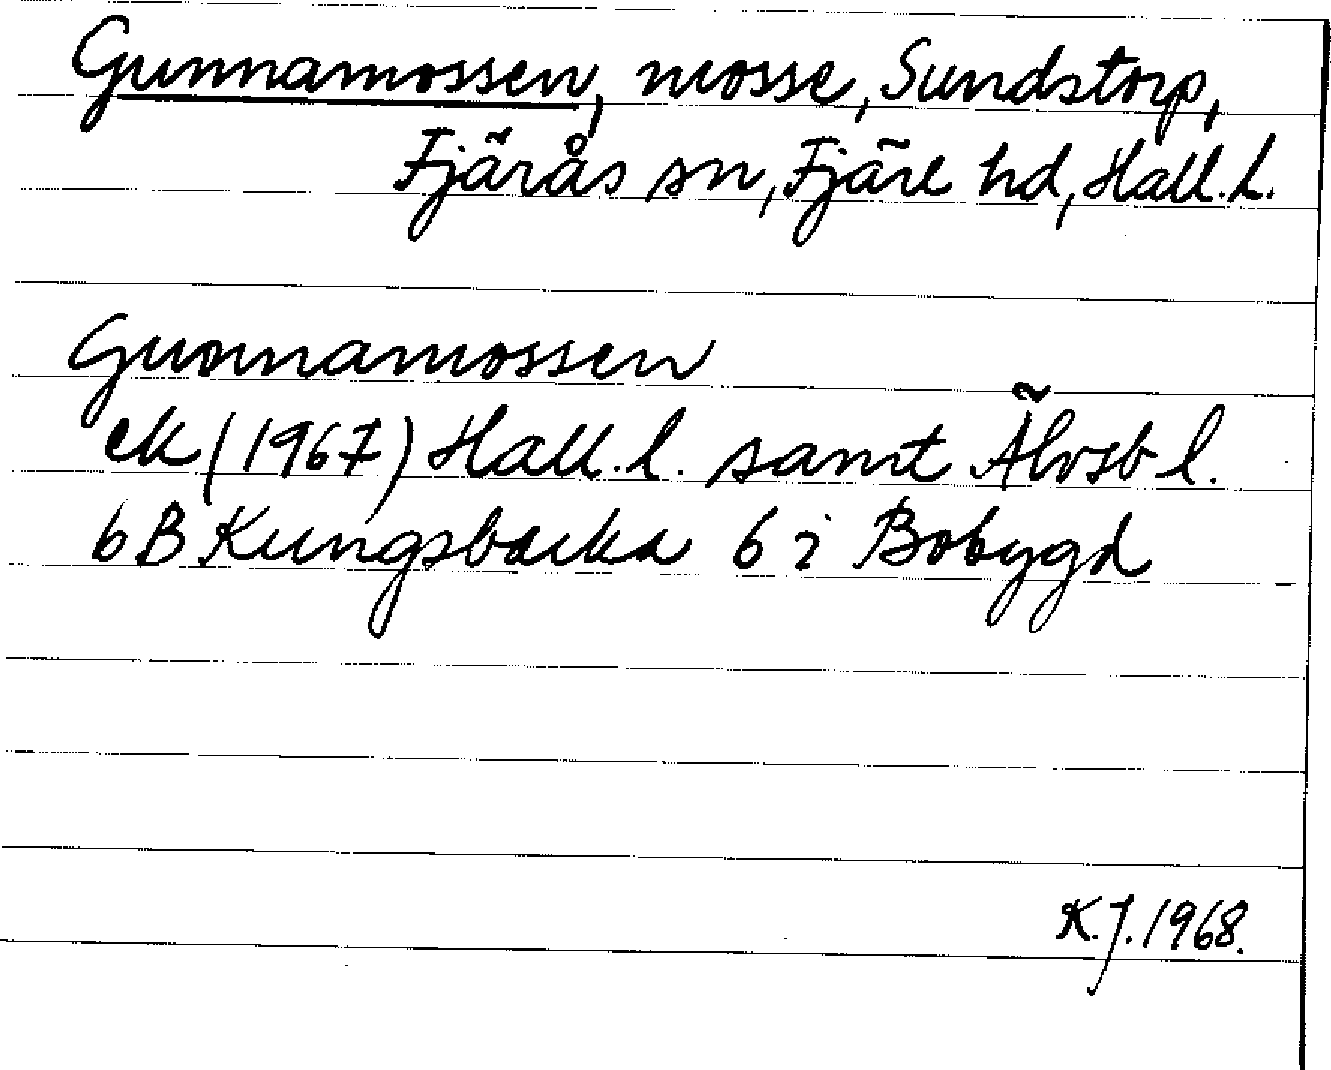 Gunnamossen, mosse, Sundstorp,
Fjärås sn, Fjäre hd, Hall.l.
Gunnamossen
ek (1967) Hall.l. samt Älvsb l.
6 B Kungsbacka 6 i Bobygd
K.J. 1968.